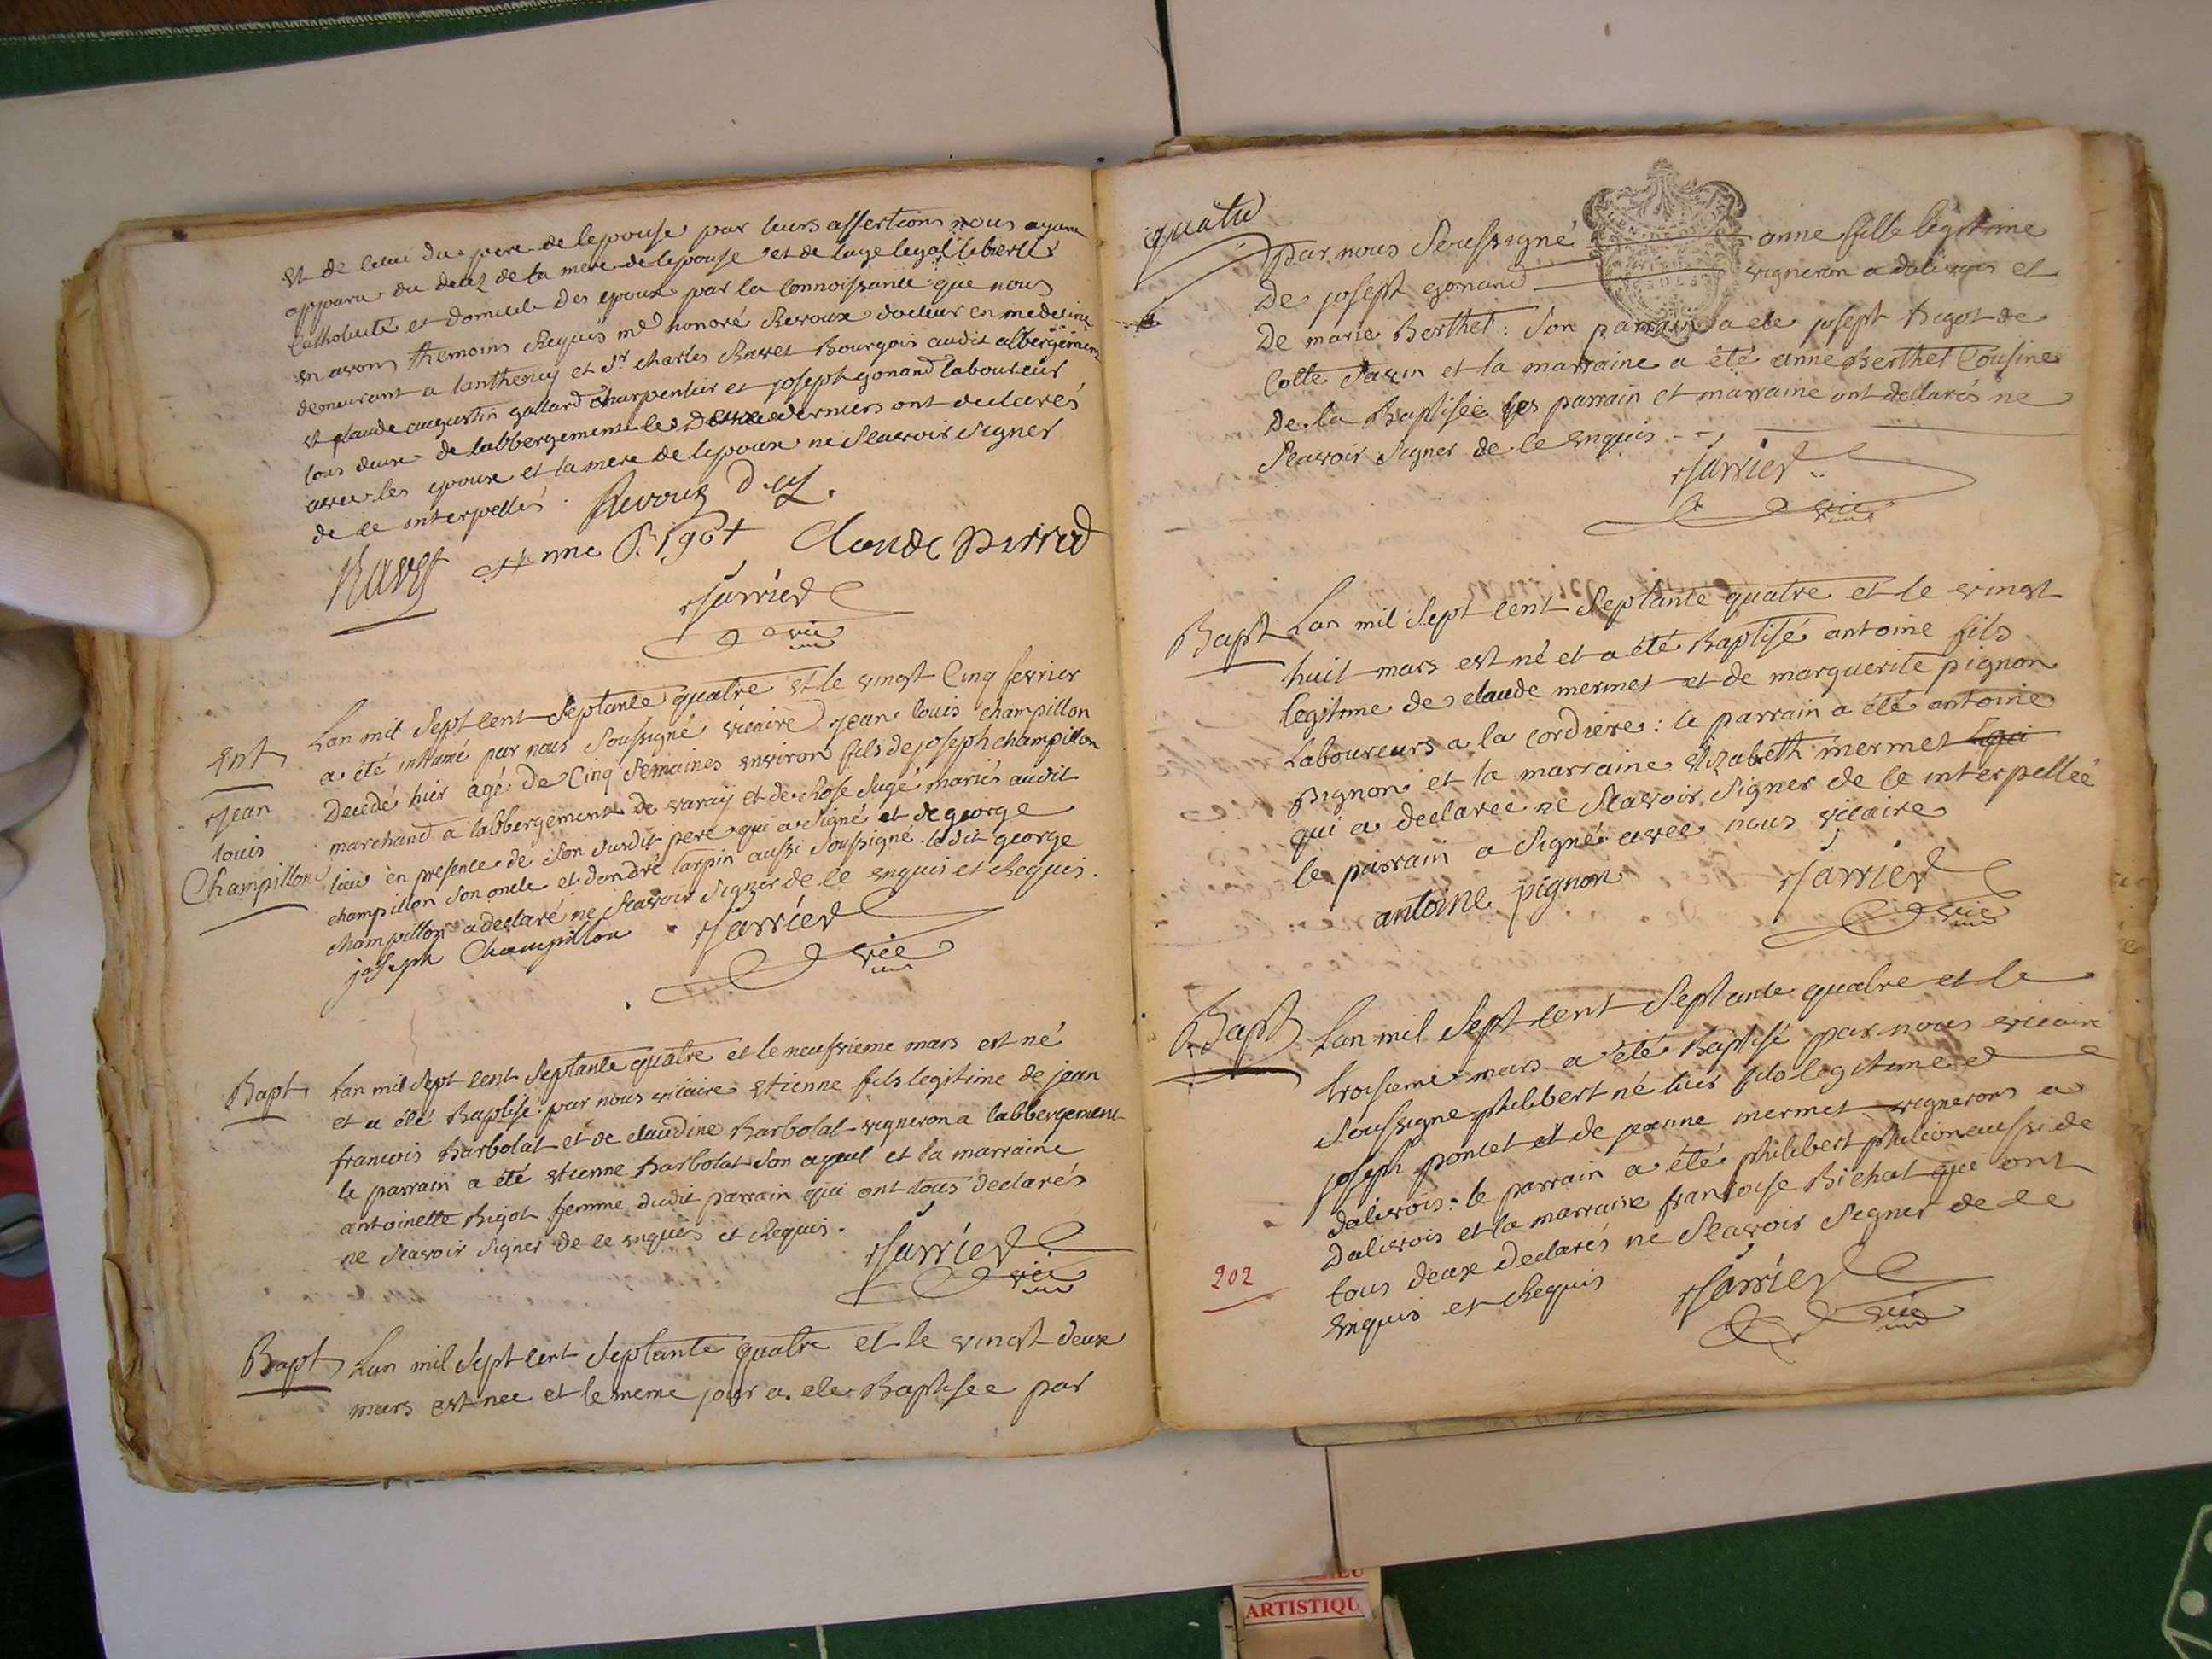 Et de celui du pere de lepouse par leurs assertions nous ayant
apparu du decez de la mere de lepouse et de lage legal liberté
catholicité et domicile des epoux par la connoissance que nous
en avons themoins Requis me honoré Revoux docteur en medecine
demeurant a lanthenay et Sr charles Ravet Bourgois audit albergement
et claude augustin gallard charpentier et joseph gonand laboureur
tous deux de labbergement les deux derniers ont declarés
avec les epoux et la mere de lepoux ne Scavoir Signer
de ce interpellés.
Revoux d. m.
Ravet anne Bigot Claude perrod
Jarrier
vic
Ent
Jean
louis
Champillon
Lan mil Sept cent Septante quatre et le vingt Cinq fevrier
a été inhumé par nous Soussigné vicaire Jean louis champillon
Decédé hier agé de Cinq Semaines environ fils de joseph champillon
marchand a labbergement de varay et de Rose Sugé mariés audit
lieu en presence de Son Susdit pere qui a Signé et de george
champillon Son oncle et dandré tarpin aussi Soussigné ledit george
champillon a declaré ne Scavoir Signer de ce enquis et Requis.
joseph Champillon Jarrier
vic
Bapt
Lan mil Sept cent Septante quatre et le neufvieme mars est né
et a été Baptisé par nous vicaire Etienne fils legitime de jean
francois Barbolat et de claudine Barbolat vigneron a labbergement
le parrain a été etienne Barbolat Son ayeul et la marraine
antoinette Bigot femme dudit parrain qui ont tous declarés
ne Scavoir Signer de ce enquis et Requis.
Jarrier
vic
Bapt Lan mil Sept cent Septante quatre et le vingt deux
mars est née et le meme jour a ete Baptisee par
quatre
par nous Soussigné anne fille légitime
De joseph gonand vigneron a dalivois et
De marie Berthet : Son parrain a ete joseph Bigot de
Cotte Savin et la marraine a été anne Berthet Cousine
De la Baptisée les parrain et marraine ont declarés ne
Scavoir Signer de ce enquis
Jarrier
vic
Bapt Lan mil Sept cent Septante quatre et le vingt
huit mars est né et a été Baptisé antoine fils
legitime de claude mermet et de marguerite pignon
Laboureurs a la cordiere : le parrain a été antoine
pignon et la marraine Elizabeth mermet
qui a declaree ne Scavoir Signer de ce interpellée
le parrain a Signé avec nous vicaire
antoine pignon Jarrier
vic
Bapt Lan mil Sept cent Septante quatre et le
troisieme mars a été Baptisé par nous vicaire
Soussigne philibert né hier fils legitime d
joseph poncet et de jeanne mermet vignerons a
dalivois : le parrain a été philibert philicon aussi de
Dalivois et la marraine francoise Bichat qui ont
tous deux declarés ne Scavoir Signer de ce
enquis et Requis
Jarrier
vic
202
ARTISTIQU